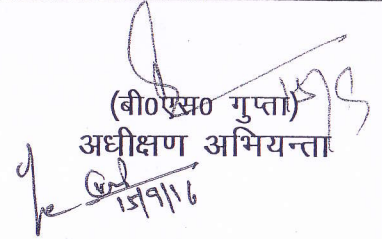 (बी0एस0 गुप्ता)
अधीक्षण अभियन्ता
15/9/16